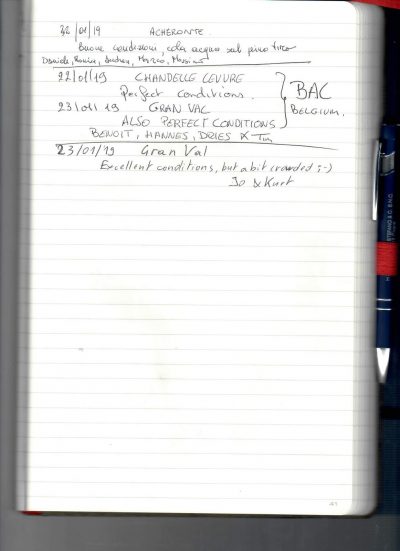 /01/19 ACHERONTE.
Buone condizioni, cola acqua sul primo tiro
Daniele, Andrea, Marco, Massimo
22/01/19 CHANDELLE LEVURE
Perfect conditions.
23/01/19 GRAN VAL
ALSO PERFECT CONDITIONS
BENOIT, HANNES, DRIES & Tim
BAC
BELGIUM,
23/01/19 Gran Val
Excellent conditions, but a bit crowded ;-)
Jo & Kurt